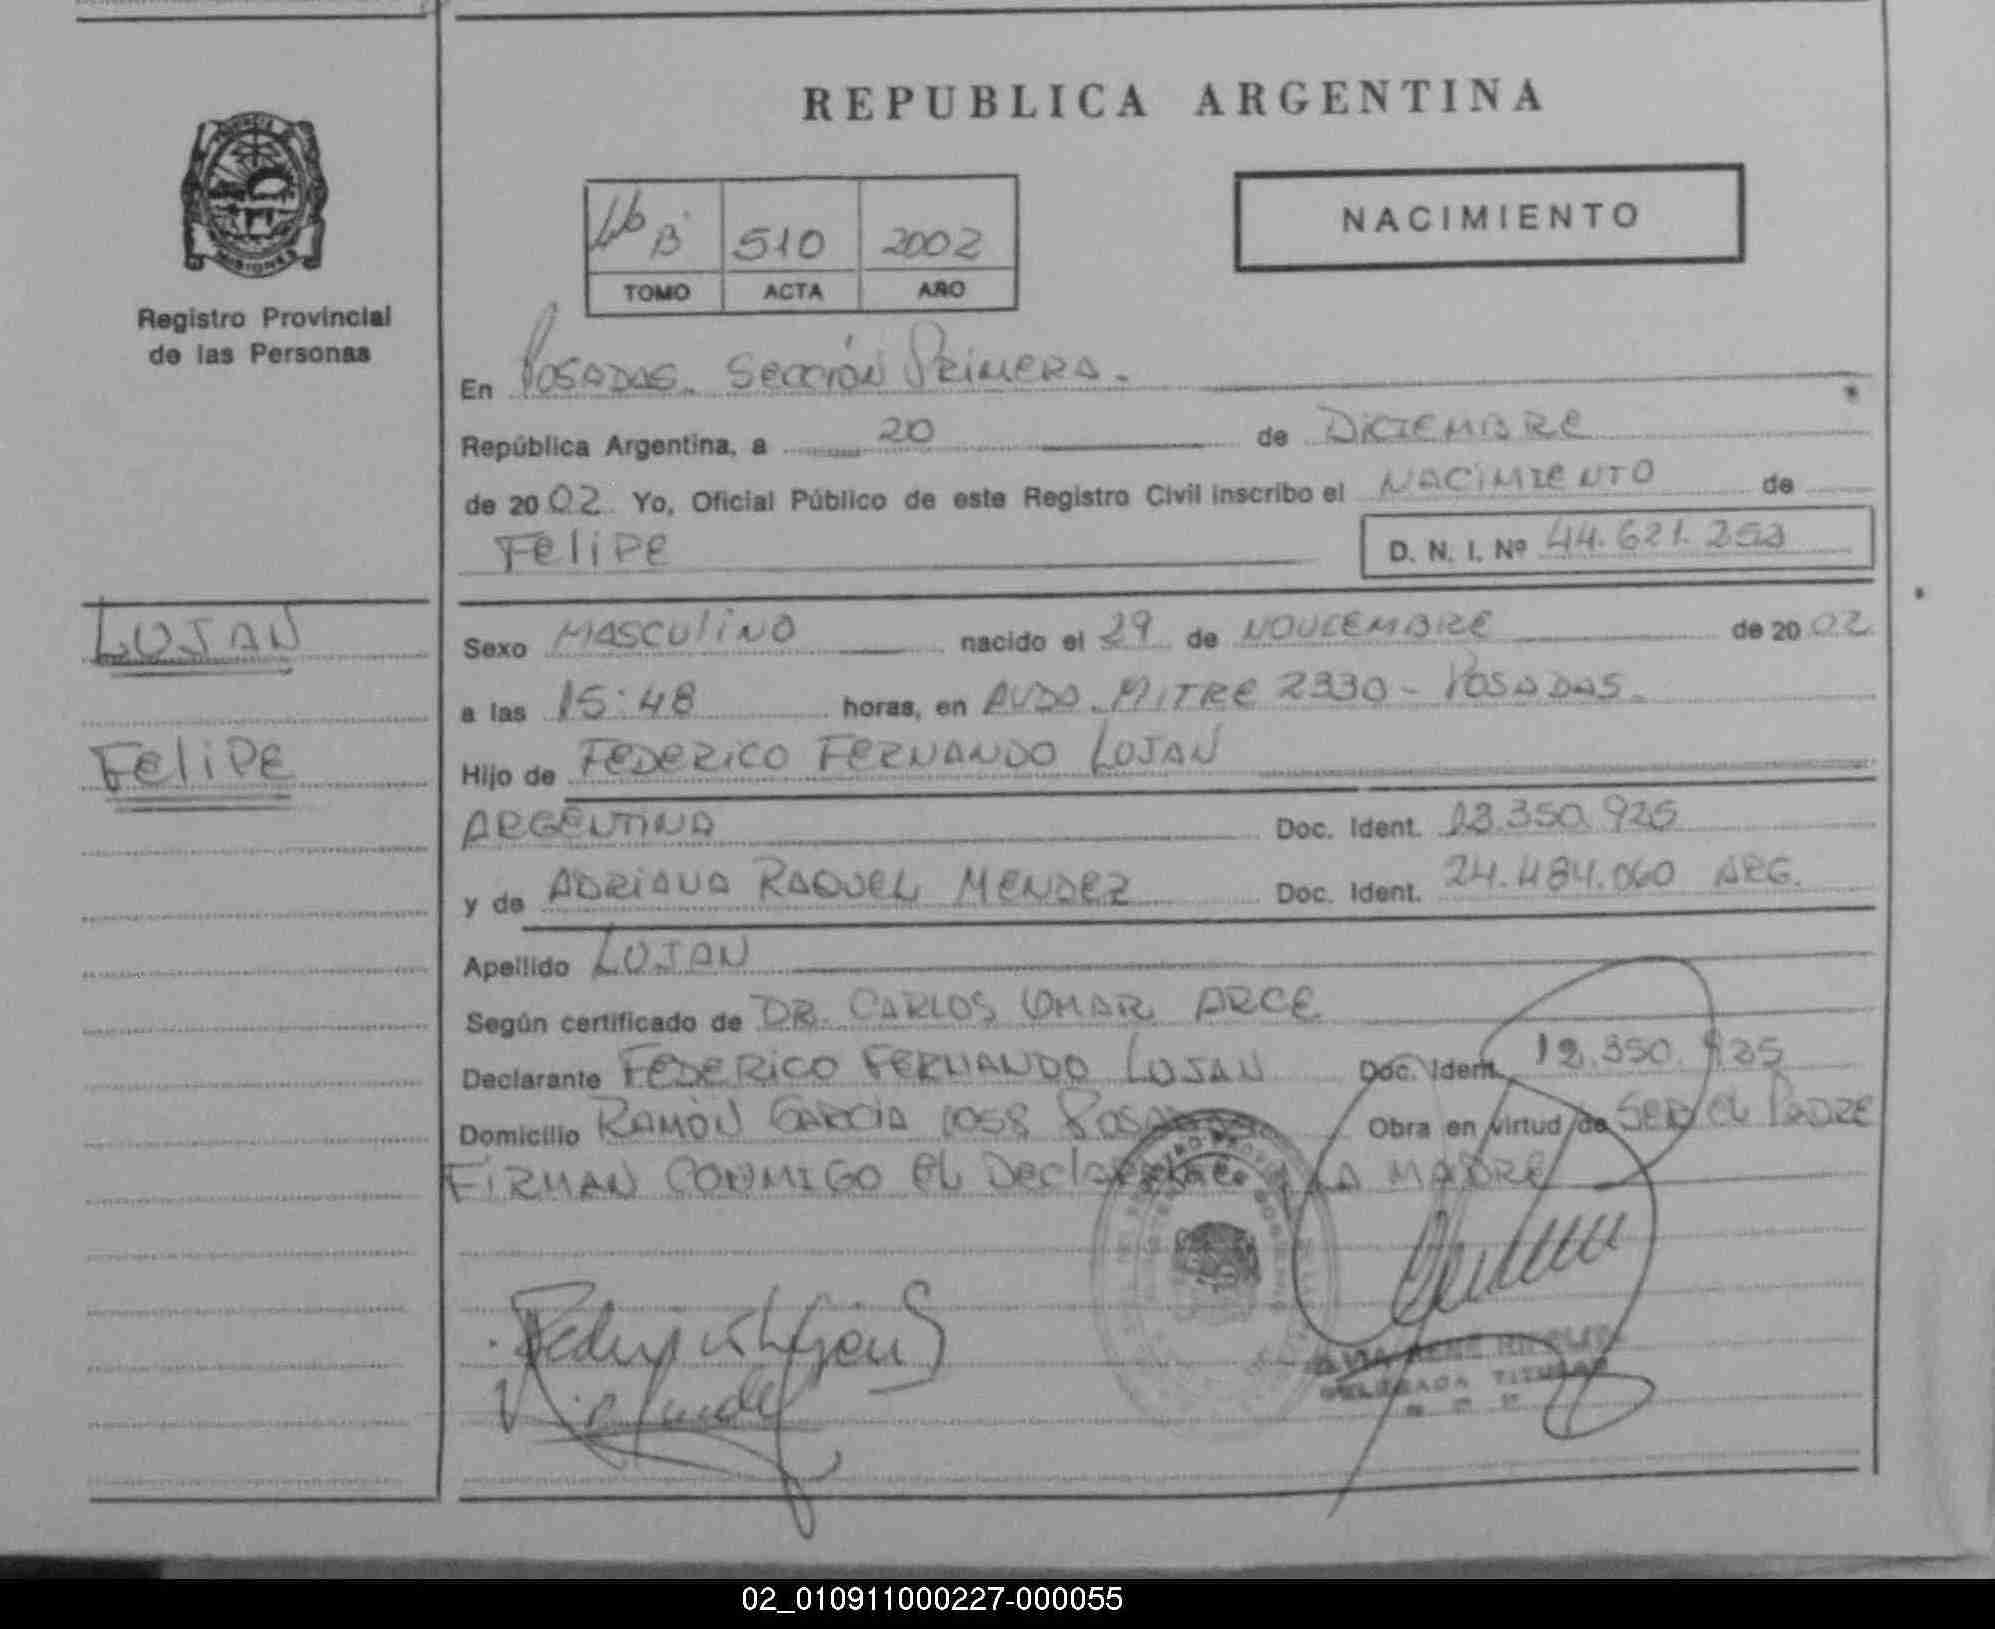 REPUBLICA ARGENTINA
PROVINCIA DE
MISIONES
Registro Provincial
de las Personas
B 510 2002
TOMO ACTA AÑO
NACIMIENTO
En POSADAS. SECCIÓN PRIMERA.
República Argentina, a 20 de DICIEMBRE
de 2002 Yo, Oficial Público de este Registro Civil inscribo el NACIMIENTO de
FELIPE D. N. I. Nº
LUJAN
FELIPE
Sexo MASCULINO nacido el 29 de NOVIEMBRE de 2002
a las 15:48 horas, en AVDA. MITRE 2330 - POSADAS.
Hijo de FEDERICO FERNANDO LUJAN
ARGENTINA Doc. Ident.
y de ADRIANA RAQUEL MENDEZ Doc. Ident. 24.484.060 ARG.
Apellido LUJAN
Según certificado de DR. CARLOS OMAR ARCE
Declarante FEDERICO FERNANDO LUJAN Doc. Ident.
Domicilio RAMÓN GARCIA 1058 Obra en virtud de SER EL PADRE
FIRMAN CONMIGO EL LA MADRE
DELEGADA TITULAR
02_010911000227-000055